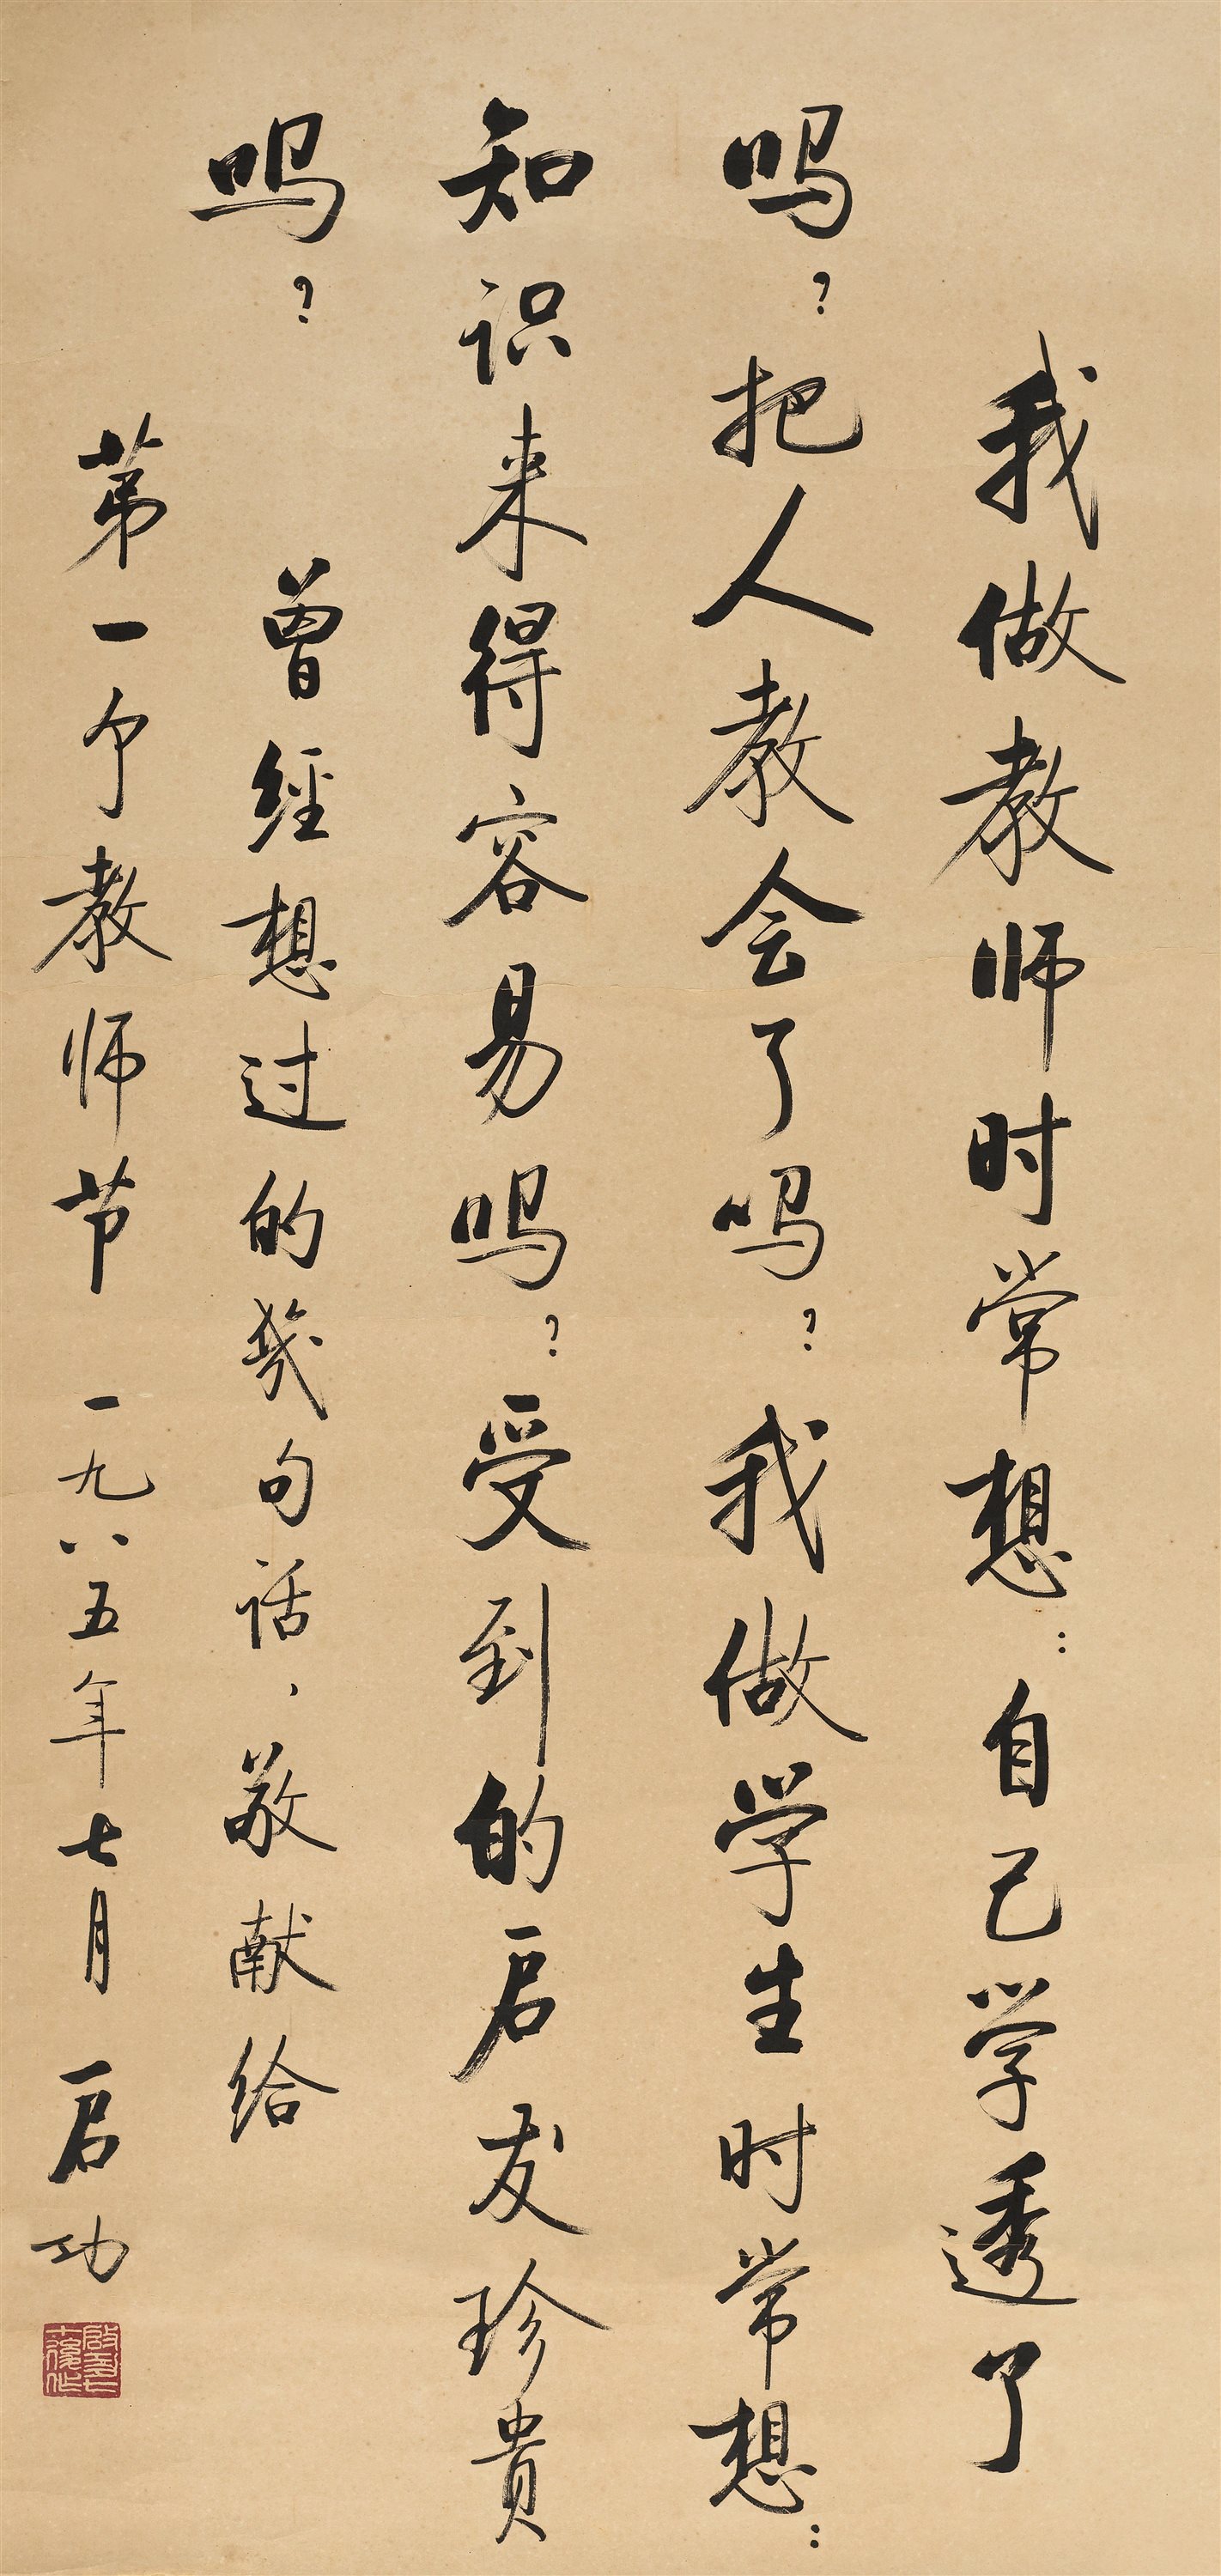 我做教师时常想：自己学透了
吗？把人教会了吗？我做学生时常想：
知识来得容易吗？受到的启发珍贵
吗？
曾經想过的幾句话，敬献给
第一个教师节 一九八五年七月 启功